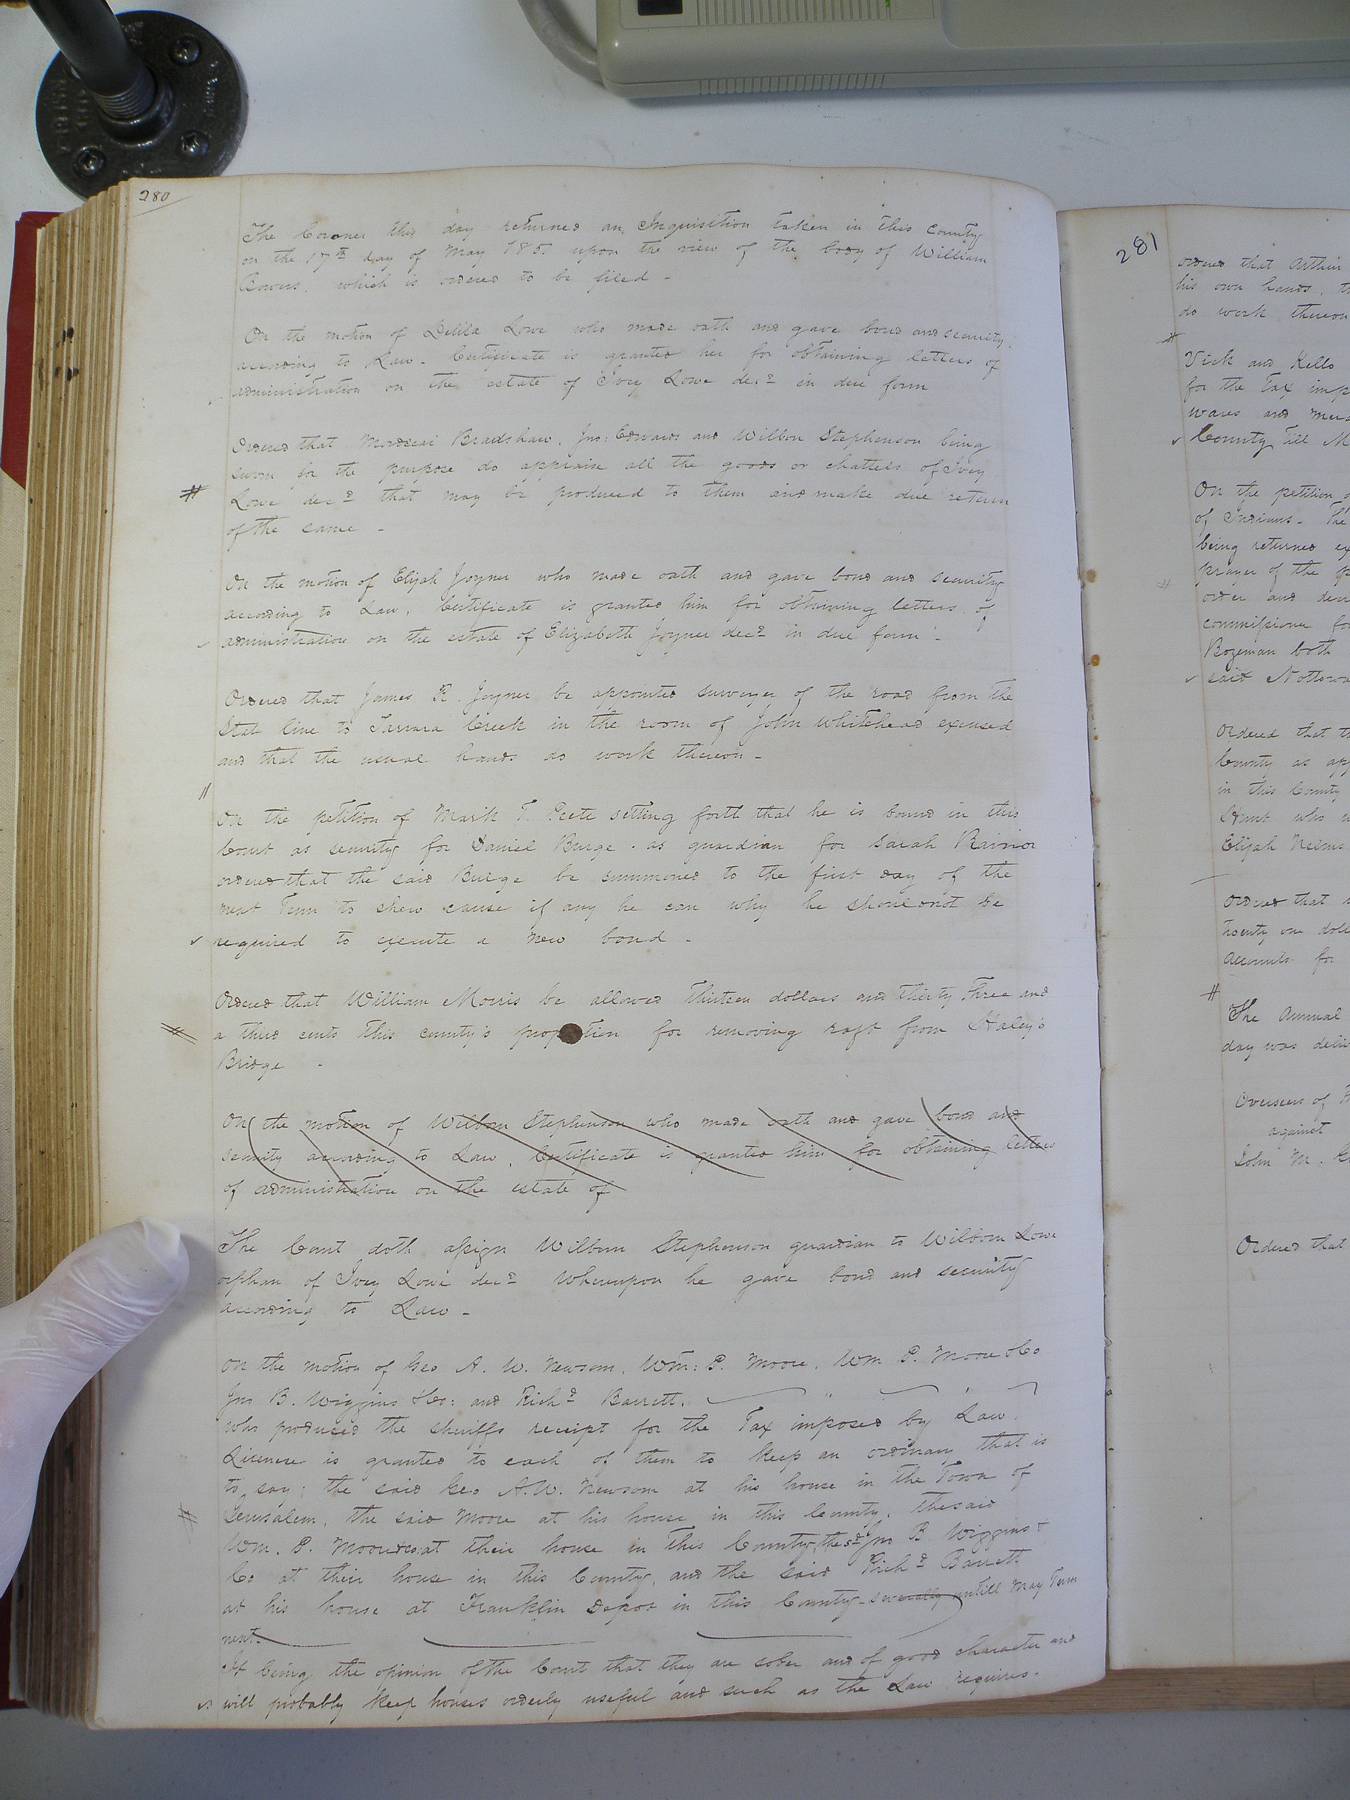 280
The Coroner this day returned an Inquisition taken in this County
on the 17th day of May 185. upon the view of the body of William
Bowers. which is ordered to be filed -
On the motion of Delila Lowe who made oath and gave bond and security
according to Law. Certificate is granted her for obtaining letters of
administration on the estate of Ivey Lowe decd in due form
Ordered that Mordecai Bradshaw, Jno: Edwards and Wilborn Stephenson being
sworn for the purpose do appraise all the goods or chattels of Ivey
# Lowe decd that may be produced to them and make due return
of the same -
On the motion of Elijah Joyner who made oath and gave bond and security
according to Law, Certificate is granted him for obtaining letters of
administration on the estate of Elizabeth Joyner decd in due form -
Ordered that James R. Joyner be appointed surveyor of the road from the
State line to Tarrara Creek in the room of John Whitehead excused
and that the usual hands do work thereon -
On the petition of Mark T. Peete setting forth that he is bound in this
Court as security for Daniel Burge. as guardian for Sarah
ordered that the said Burge be summoned to the first day of the
next Term to shew cause if any he can why he should not be
required to execute a new bond -
Ordered that William Morris be allowed Thirteen dollars and thirty three and
# a third cents this county's proportion for removing raft from Haley's
Bridge -
On the motion of Wilborn Stephenson who made oath and gave bond and
security according to Law, Certificate is granted him for obtaining letters
of administration on the estate of
The Court doth assign Wilborn Stephenson guardian to Wilborn Lowe
orphan of Ivey Lowe decd Whereupon he gave bond and security
according to Law -
On the motion of Geo A. W. Newsom, Wm: P. Moore, Wm P. Moore &Co
Jno B. Wiggins &Co: and Richd Barrett.
who produced the sheriffs receipt for the Tax imposed by Law.
License is granted to each of them to keep an ordinary that is
to say; the said Geo A.W. Newsom at his house in the Town of
# Jerusalem, the said Moore at his house in this County, the said
Wm. P. Moore&co. at their house in this County, the sd Jno B Wiggins &
Co at their house in this County, and the said Richd Barrett
at his house at Franklin Depot in this County - severally untill May Term
next.
It being the opinion of the Court that they are sober and of good character and
will probably keep houses orderly useful and such as the Law requires.
281
ordered that Arthur
his own hands,
do work thereon
#
Vick and Kello
for the Tax imp
wares and mer
County till M
On the petition
of Indians. The
being returned ex
prayer of the p
order and dec
commissioner fo
Bozeman both
said Nottowa
Ordered that th
County as app
in this County
Hunt who w
Elijah Nelms
Ordered that
twenty one doll
accounts for
#
The Annual
day was deli
Overseers of
against
John M.
Ordered that